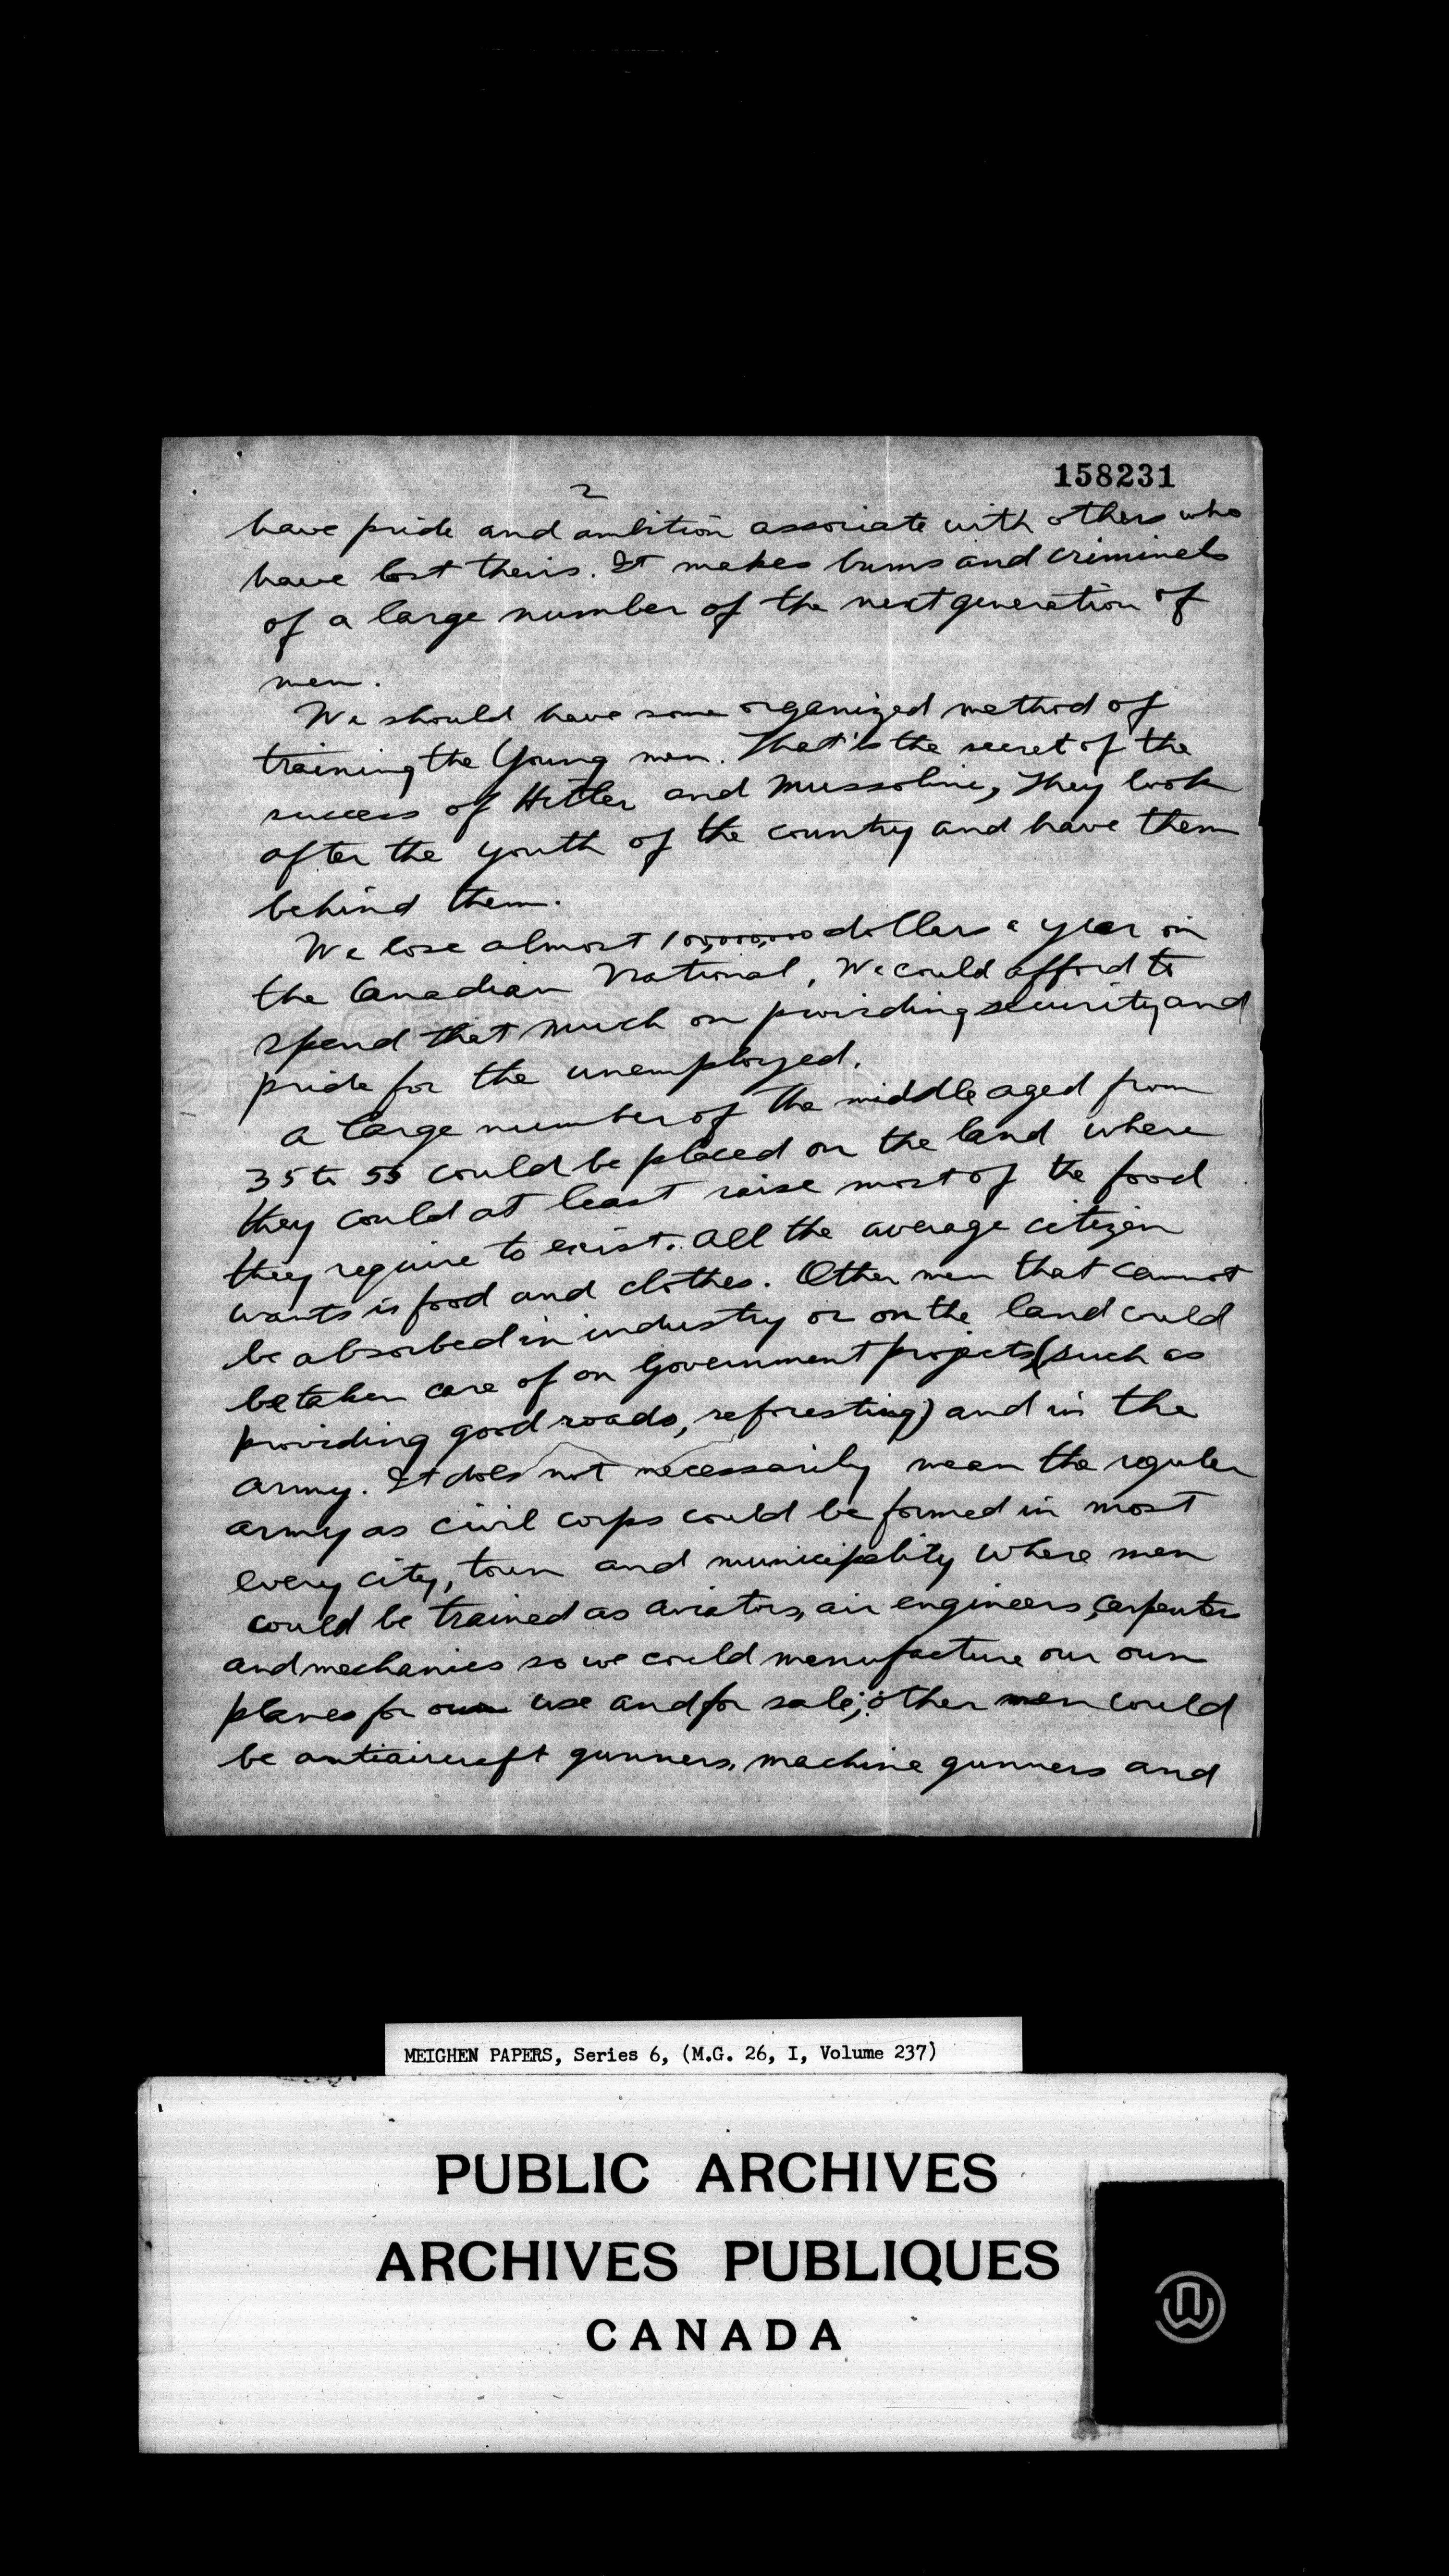 158231
2
have pride and ambition associate with others who
have lost theirs. It makes bums and criminels
of a large number of the next generation of
men.
We should have some organized method of
training the Young men. That's the secret of the
success of Hitler and Mussolini, They look
after the youth of the country and have them
behind them.
We lose almost 100,000,000 dollars a year in
the Canadian National, We could afford to
spend that much on providing security and
pride for the unemployed.
A large number of the middle aged from
35 to 55 could be placed on the land where
they could at least raise most of the food
they require to exist. All the average citizen
wants is food and clothes. Other men that cannot
be absorbed in industry or on the land could
be taken care of on Government projects (such as
providing good roads, reforesting) and in the
army. It does not necessarily mean the reguler
army as civil corps could be formed in most
every city, town and municipality where men
could be trained as aviators, air engineers, carpenters
and mechanics so we could manufacture our own
planes for our use and for sale; other men could
be antiaircraft gunners, machine gunners and
MEIGHEN PAPERS, Series 6, (M.G. 26, I, Volume 237)
PUBLIC ARCHIVES
ARCHIVES PUBLIQUES
CANADA